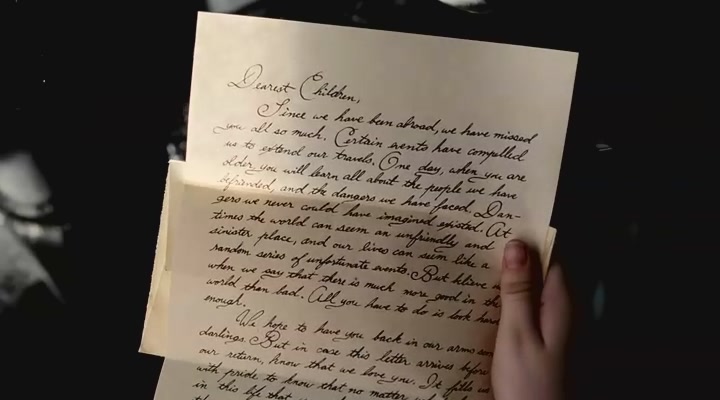 Dearest Children,
Since we have been abroad, we have missed
you all so much. Certain events have compelled
us to extend our travels. One day, when you are
older, you will learn all about the people we have
befriended, and the dangers we have faced. Dan-
gers we never could have imagined existed. At
times the world can seem an unfriendly and
sinister place, and our lives can seem like a
random series of unfortunate events. But
when we say that there is much more good in the
world than bad. All you have to do is look
enough.
We hope to have you back in our arms
darlings. But in case this letter arrives
our return, know that we love you. It fills
with pride to know that no matter
in this life